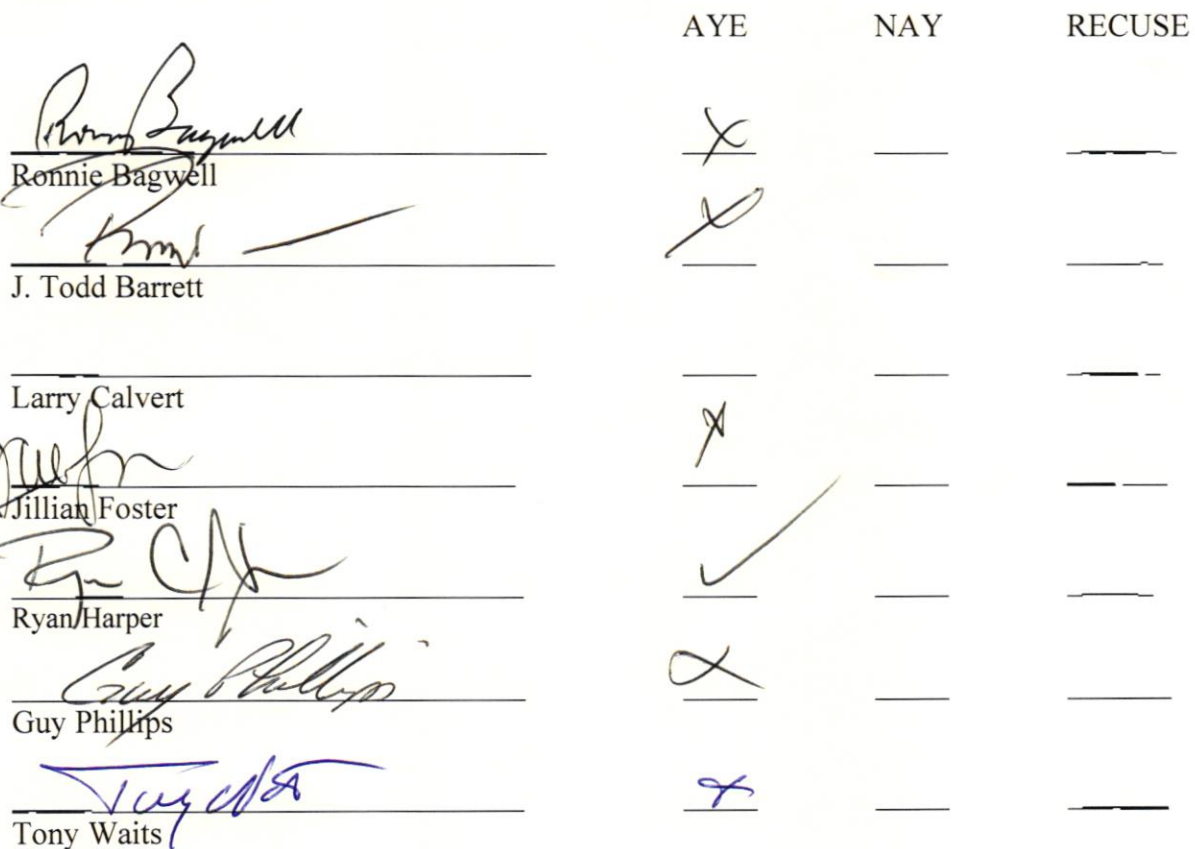 AYE NAY RECUSE
Ronnie Bagwell
X
Ronnie Bagwell
X
J. Todd Barrett
Larry Calvert
X
Jillian Foster
✓
Ryan Harper
Guy Phillips X
Guy Phillips
Tony Waits X
Tony Waits